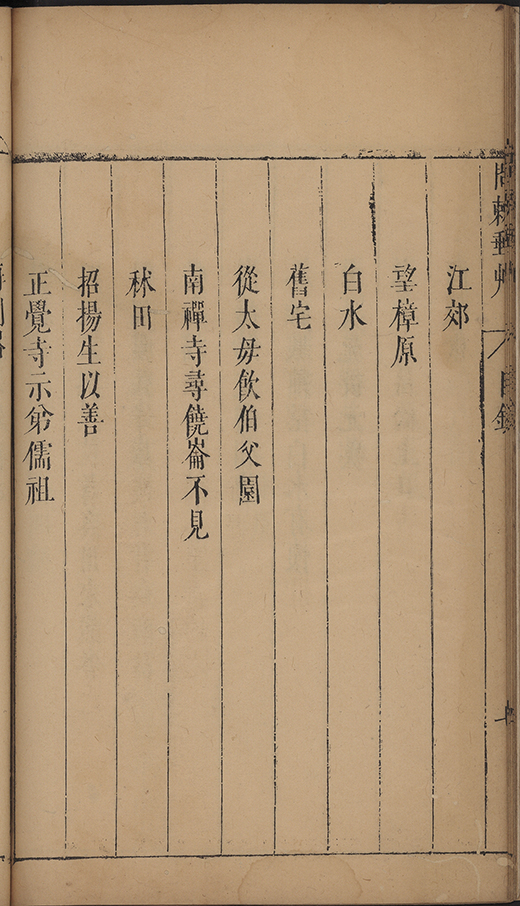 問棘郵艸
目錄
七
江郊
望樟原
白水
舊宅
從太毋飲伯父園
南禪寺尋饒崙不見
秫田
招揚生以善
正覺寺示弟儒祖